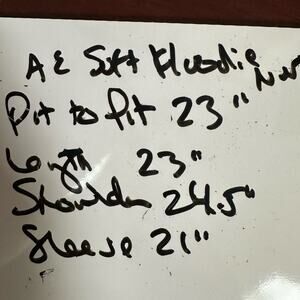 AE Soft Hoodie
Pit to Pit 23"
Length 23"
Shoulder 24.5"
Sleeve 21"